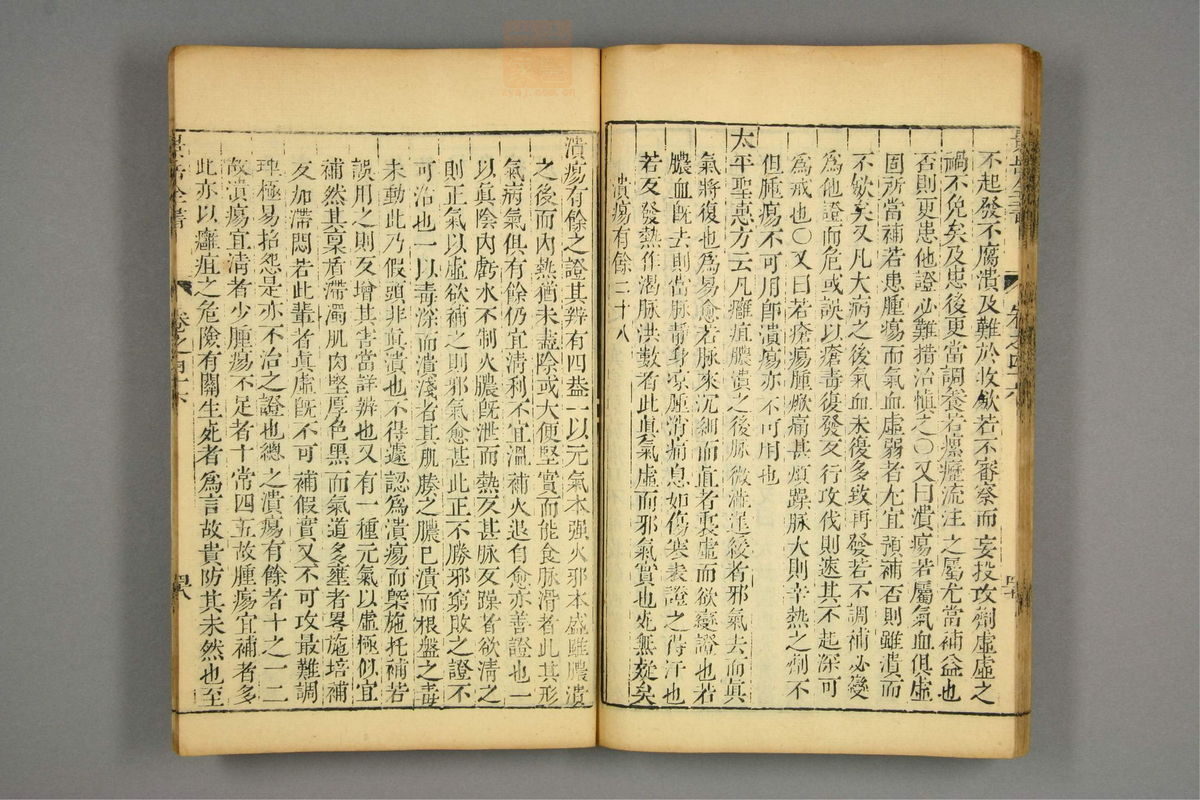 不起發不腐潰及難於收歛若不審察而妄投攻劑虛虛之
禍不免矣及患後更當調養若瘰癧流注之屬尤當補益也
否則更患他證必難措治慎之○又曰潰瘍若屬氣血俱虛
固所當補若患腫瘍而氣血虛弱者尤宜預補否則雖潰而
不歛矣又凡大病之後氣血未復多致再發若不調補必變
為他證而危或誤以瘡毒復發反行攻伐則速其不起深可
為戒也○又曰若瘡瘍腫焮痛甚煩躁脉大則辛熱之劑不
但腫瘍不可用卽潰瘍亦不可用也
太平聖惠方云凡癰疽膿潰之後脉微澁遲緩者邪氣去而眞
氣將復也為易愈若脉來沉細而直者裏虛而欲變證也若
膿血旣去則當脉靜身凉腫消痛息如傷寒表證之得汗也
若反發熱作渴脉洪數者此眞氣虛而邪氣實也死無疑矣
潰瘍有餘二十八
景岳全書
卷之四十六
四七
潰瘍有餘之證其辨有四盖一以元氣本强火邪本盛雖膿潰
之後而內熱猶未盡除或大便堅實而能食脉滑者此其形
氣病氣俱有餘仍宜清利不宜溫補火退自愈亦善證也一
以眞陰內虧水不制火膿旣泄而熱反甚脉反躁者欲清之
則正氣以虛欲補之則邪氣愈甚此正不勝邪窮敗之證不
可治也一以毒深而潰淺者其肌腠之膿已潰而根盤之毒
未動此乃假頭非眞潰也不得遽認為潰瘍而槩施托補若
誤用之則反增其害當詳辨也又有一種元氣以虛極似宜
補然其稟質滯濁肌肉堅厚色黑而氣道多壅者畧施培補
反加滯悶若此輩者眞虛旣不可補假實又不可攻最難調
理極易招怨是亦不治之證也總之潰瘍有餘者十之一二
故潰瘍宜清者少腫瘍不足者十常四五故腫瘍宜補者多
此亦以癰疽之危險有關生死者為言故貴防其未然也至
景岳全書
卷之四十六
四八